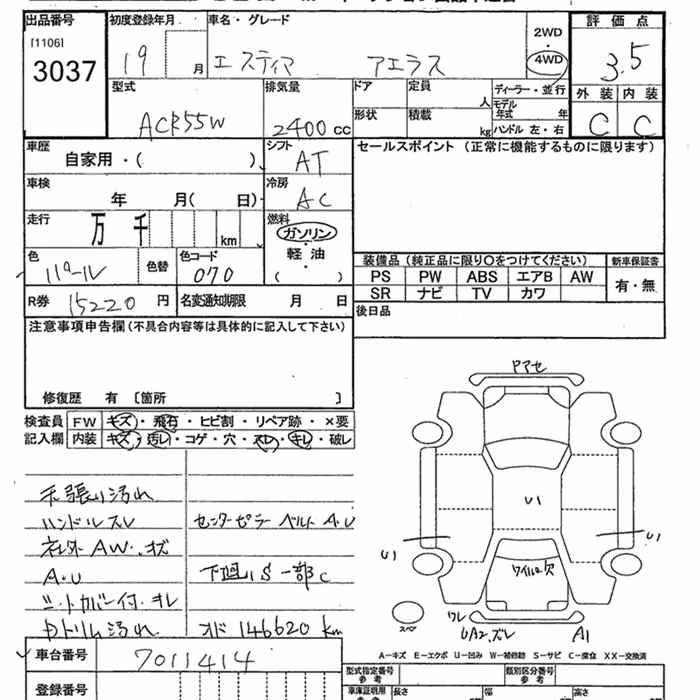 出品番号 初度登録年月 車名・グレード 2WD 評価点
[1106] 19 月 エスティマ アエラス 4WD 3.5
3037 型式 排気量 ドア 定員 ディーラー・並行 外装 内装
ACR55W 2400cc 人 モデル年式 年 C C
形状 積載 kg ハンドル 左・右
車歴 自家用・( ) シフト AT セールスポイント (正常に機能するものに限ります)
車検 年 月( 日) 冷房 AC
走行 万 千 km 燃料 ガソリン
軽油
( ・ )
色 パール 色替 色コード 070
装備品 (純正品に限り○をつけてください) 新車保証書
PS PW ABS エアB AW 有・無
SR ナビ TV カワ
R券 15220 円 名変通知期限 月 日 後日品
注意事項申告欄 (不具合内容等は具体的に記入して下さい)
修復歴 有 〔箇所 〕
検査員 FW キズ・飛石・ヒビ割・リペア跡・×要
記入欄 内装 キズ・汚レ・コゲ・穴・スレ・キレ・破レ
天張り汚れ
ハンドルスレ センターピラーベルトA・U
社外AW・キズ
A・U 下廻りS一部C
シートカバー付・キレ
内トリム汚れ オド 146620 km
車台番号 7011414
登録番号
Fアセ
U1
U1
U1
ワイパー欠
スペア
ワレ
UA2.ズレ A1
A-キズ E-エクボ U-凹み W-補修跡 S-サビ C-腐食 XX-交換済
型式指定番号 参考 類別区分番号 参考
車庫証明用 長さ 幅 高さ